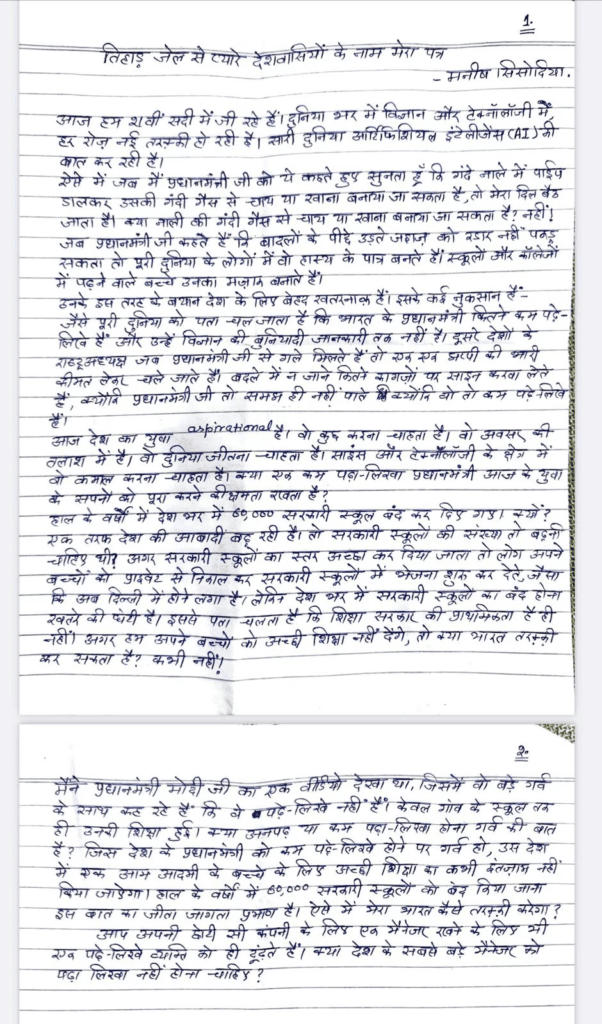 1.
तिहाड़ जेल से प्यारे देशवासियों के नाम मेरा पत्र
- मनीष सिसोदिया.
आज हम 21वीं सदी में जी रहे हैं। दुनिया भर में विज्ञान और टेक्नोलॉजी में
हर रोज़ नई तरक्की हो रही है। सारी दुनिया आर्टिफिशियल इंटेलीजेंस (AI) की
बात कर रही है।
ऐसे में जब मैं प्रधानमंत्री जी को ये कहते हुए सुनता हूँ कि गंदे नाले में पाईप
डालकर उसकी गंदी गैस से चाय या खाना बनाया जा सकता है, तो मेरा दिल बैठ
जाता है। क्या नाली की गंदी गैस से चाय या खाना बनाया जा सकता है? नहीं!
जब प्रधानमंत्री जी कहते हैं कि बादलों के पीछे उड़ते जहाज़ को रडार नहीं पकड़
सकता तो पूरी दुनिया के लोगों में वो हास्य के पात्र बनते हैं। स्कूलों और कॉलेजों
में पढ़ने वाले बच्चे उनका मज़ाक बनाते हैं।
उनके इस तरह के बयान देश के लिए बेहद खतरनाक हैं। इसके कई नुकसान हैं -
जैसे पूरी दुनिया को पता चल जाता है कि भारत के प्रधानमंत्री कितने कम पढ़े-
लिखे हैं और उन्हें विज्ञान की बुनियादी जानकारी तक नहीं है। दूसरे देशों के
राष्ट्रअध्यक्ष जब प्रधानमंत्री जी से गले मिलते हैं तो एक एक झप्पी की भारी
कीमत लेकर चले जाते हैं। बदले में न जाने कितने कागज़ों पर साइन करवा लेते
हैं, क्योंकि प्रधानमंत्री जी तो समझ ही नहीं पाते क्योंकि वो तो कम पढ़े-लिखे
हैं।
आज देश का युवा aspirational है। वो कुछ करना चाहता है। वो अवसर की
तलाश में है। वो दुनिया जीतना चाहता है। साइंस और टेक्नॉलॉजी के क्षेत्र में
वो कमाल करना चाहता है। क्या एक कम पढ़ा-लिखा प्रधानमंत्री आज के युवा
के सपनों को पूरा करने की क्षमता रखता है?
हाल के वर्षों में देश भर में 60,000 सरकारी स्कूल बंद कर दिए गए। क्यों?
एक तरफ देश की आबादी बढ़ रही है। तो सरकारी स्कूलों की संख्या तो बढ़नी
चाहिए थी? अगर सरकारी स्कूलों का स्तर अच्छा कर दिया जाता तो लोग अपने
बच्चों को प्राइवेट से निकाल कर सरकारी स्कूलों में भेजना शुरू कर देते, जैसा
कि अब दिल्ली में होने लगा है। लेकिन देश भर में सरकारी स्कूलों का बंद होना
खतरे की घंटी है। इससे पता चलता है कि शिक्षा सरकार की प्राथमिकता है ही
नहीं! अगर हम अपने बच्चों को अच्छी शिक्षा नहीं देंगे, तो क्या भारत तरक्की
कर सकता है? कभी नहीं!
2.
मैंने प्रधानमंत्री मोदी जी का एक वीडियो देखा था, जिसमें वो बड़े गर्व
के साथ कह रहे हैं कि वे पढ़े-लिखे नहीं हैं। केवल गांव के स्कूल तक
ही उनकी शिक्षा हुई। क्या अनपढ़ या कम पढ़ा-लिखा होना गर्व की बात
है? जिस देश के प्रधानमंत्री को कम पढ़े-लिखे होने पर गर्व हो, उस देश
में एक आम आदमी के बच्चे के लिए अच्छी शिक्षा का कभी इंतज़ाम नहीं
किया जाएगा। हाल के वर्षों में 60,000 सरकारी स्कूलों को बंद किया जाना
इस बात का जीता जागता प्रमाण है। ऐसे में मेरा भारत कैसे तरक्की करेगा?
आप अपनी छोटी सी कंपनी के लिए एक मैनेजर रखने के लिए भी
एक पढ़े-लिखे व्यक्ति को ही ढूंढ़ते हैं। क्या देश के सबसे बड़े मैनेजर को
पढ़ा लिखा नहीं होना चाहिए?